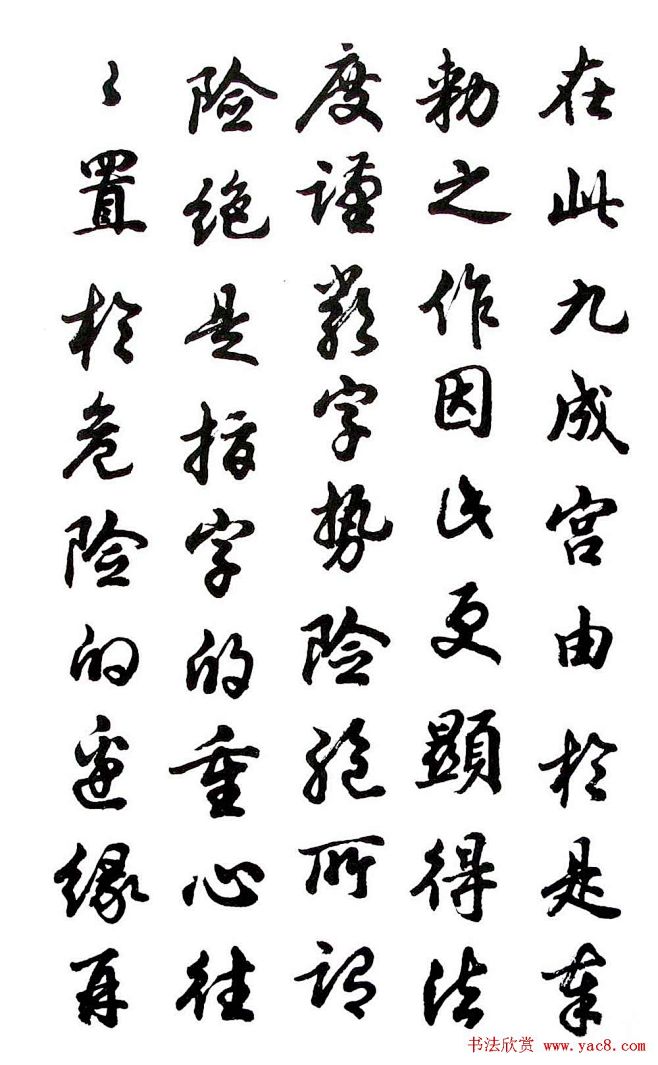 在此九成宫由於是奉
勅之作因此更顯得法
度谨严字势险绝所谓
险绝是指字的重心往
〻置於危险的边缘再
书法欣赏 www.yac8.com